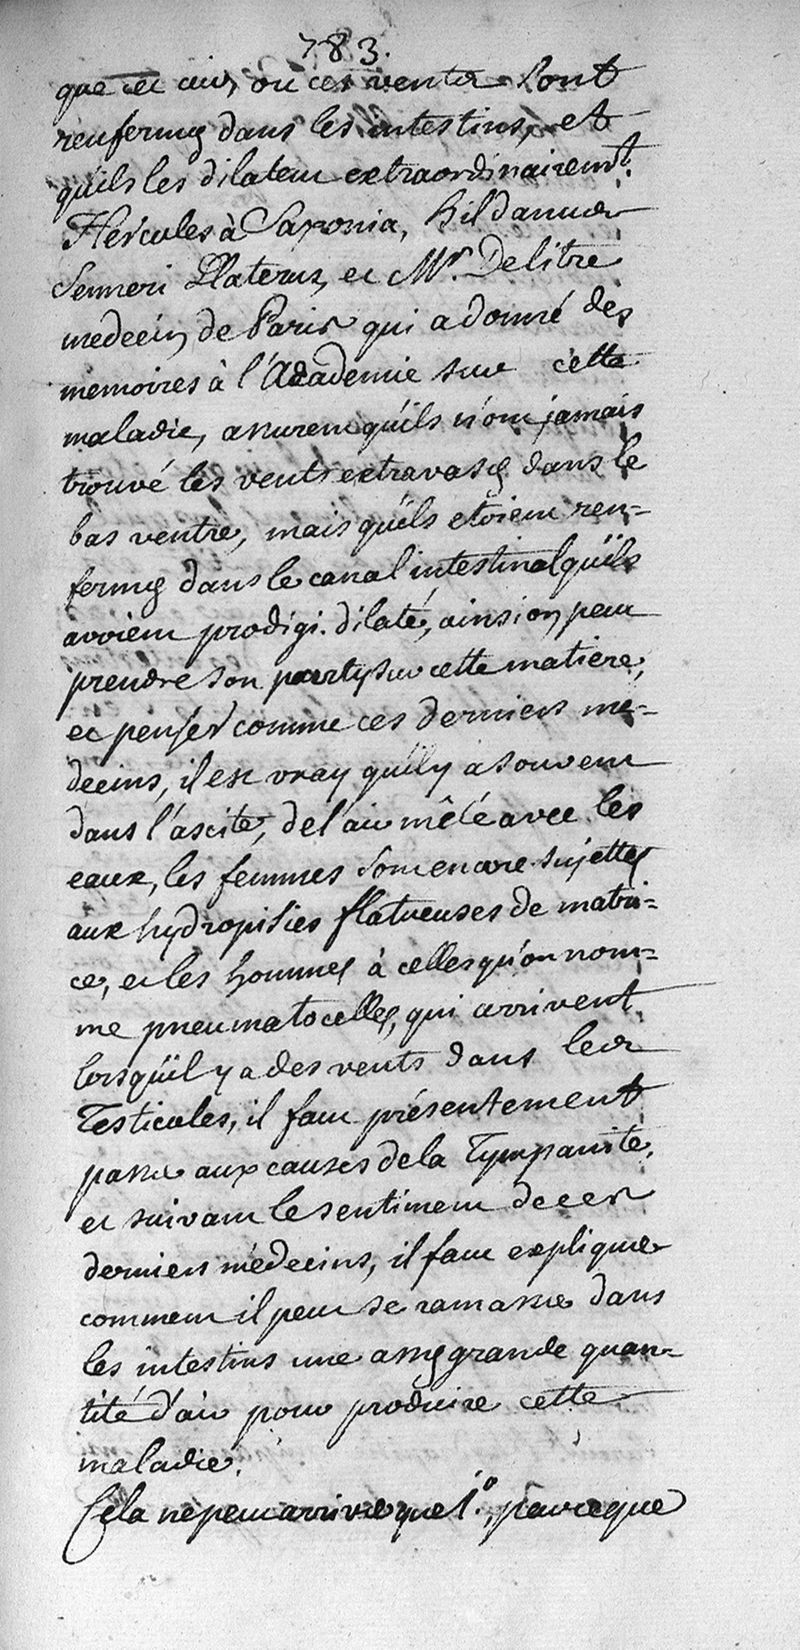 783.
que cet air, ou ces vents sont
renfermés dans les intestins, et
quils les dilatent extraordinairemt.
Hercules à Saxonia, hildanus
Senneri Platerus, et Mr. Delitre
medecin de Paris qui a donné des
memoires à l'Academie sur cette
maladie, assurent quils n'ont jamais
trouvé les vents extravasés dans le
bas ventre, mais quils etoient ren=
fermés dans le canal intestinal quils
avoient prodigi. dilaté, ainsi on peut
prendre son party sur cette matiere,
et penser comme ces derniers me=
decins, il est vray quil y a souvent
dans l'ascite, de l'air mêlé avec les
eaux, les femmes sont encore sujettes
aux hydropisies flatueuses de matri=
ce, et les hommes à celles qu'on nom=
me pneumatocelles, qui arrivent
lorsquil y a des vents dans leur
Testicules, il faut présentement
passer aux causes de la Tympanite,
et suivant le sentiment de ces
derniers médecins, il faut expliquer
comment il peut se ramasser dans
les intestins une assés grande quan=
tité d'air pour produire cette
maladie.
Cela ne peut arriver que 1o., parce que